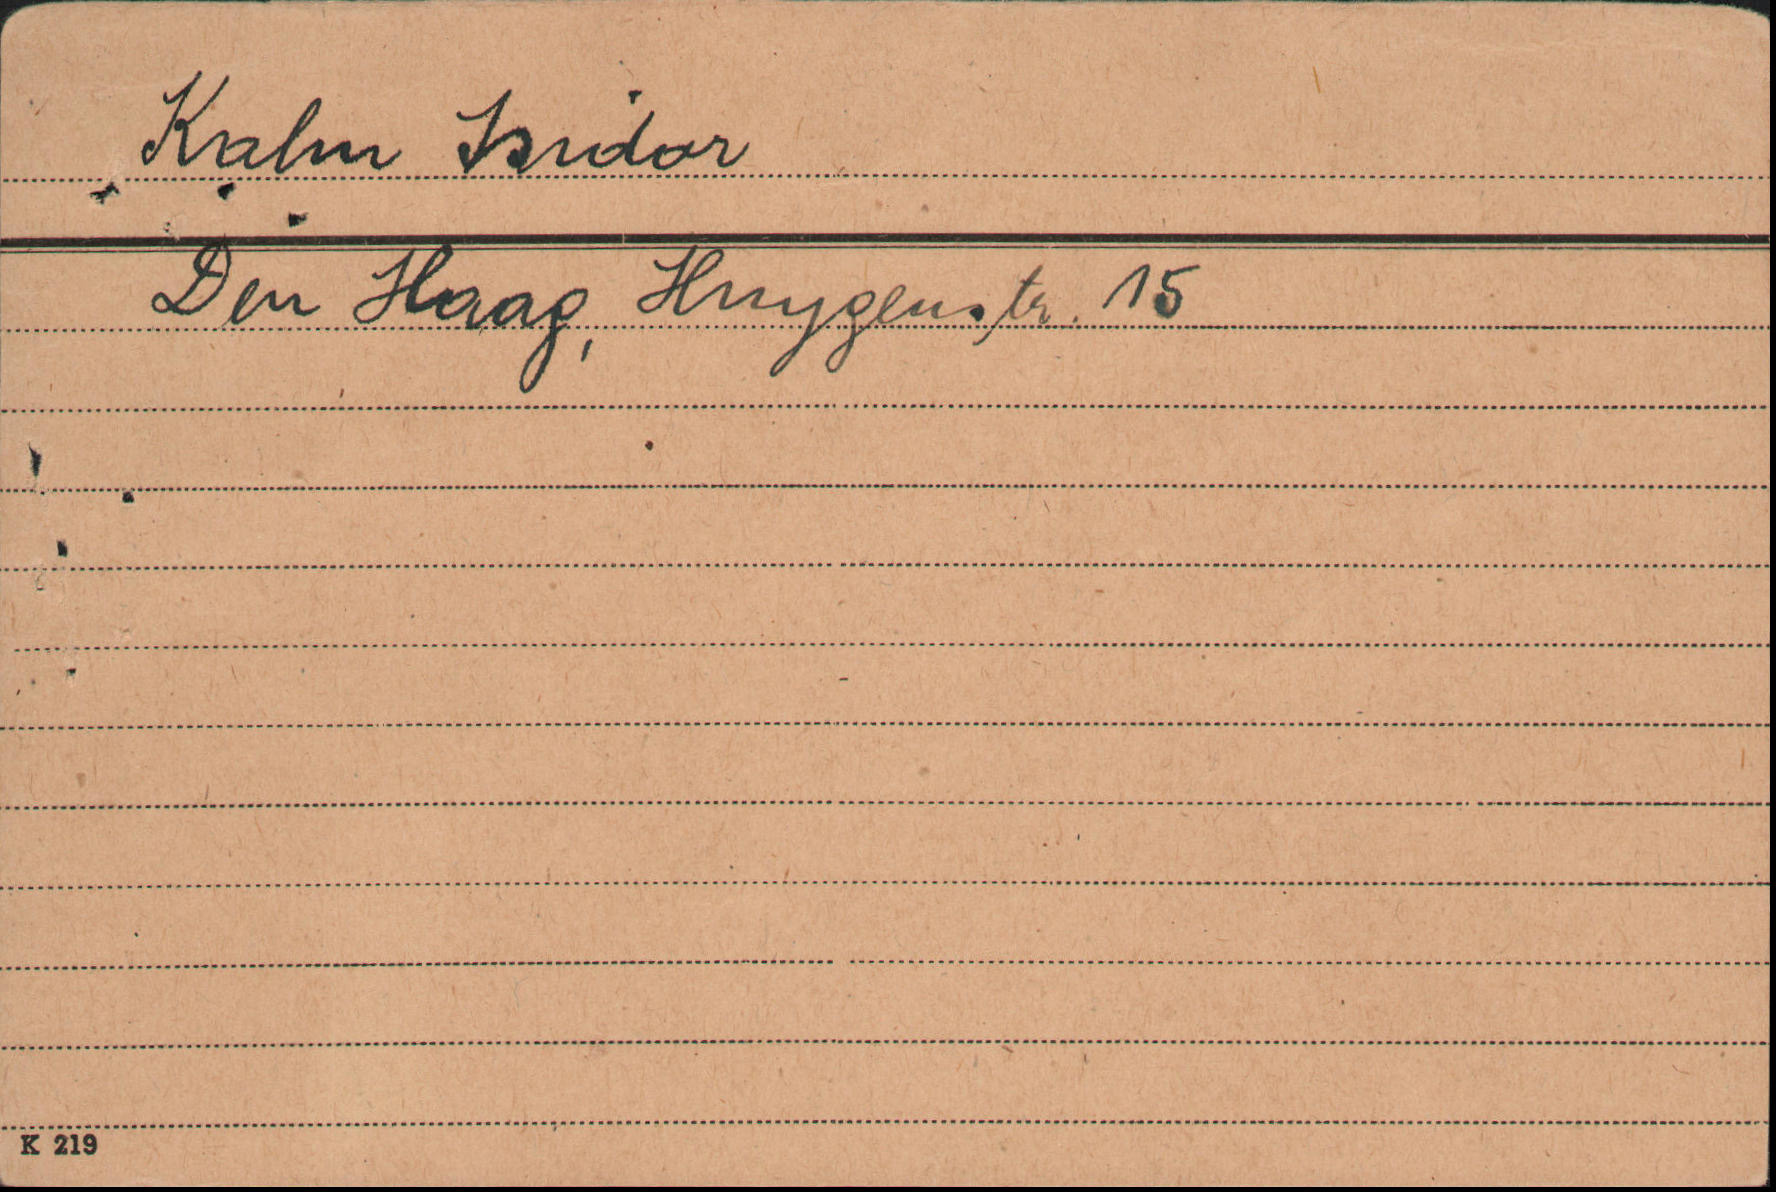 Kahn Isidor
Den Haag, Huygenstr. 15
K 219